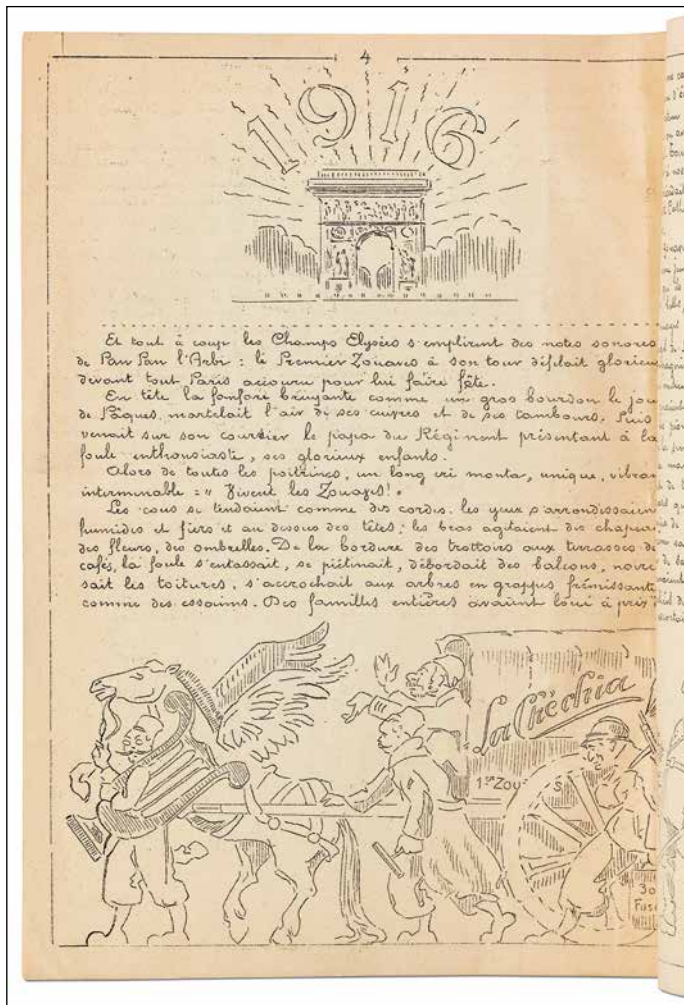 4
1916
Et tout à coup les Champs Elysées s'emplirent des notes sonores
de Pan Pan l'Arbi : le Premier Zouaves à son tour défilait glorieu
devant tout Paris accouru pour lui faire fête.
En tête la fanfare bruyante comme un gros bourdon le jou
de Pâques, martelait l'air de ses cuivres et de ses tambours. Puis
venait sur son coursier le papa du Régiment présentant à la
foule enthousiaste, ses glorieux enfants.
Alors de toutes les poitrines, un long cri monta, unique, vibran
interminable : " Vivent les Zouaves! "
Les cous se tendaient comme des cordes. les yeux s'arrondissaien
humides et fiers et au dessus des têtes; les bras agitaient des chapeau
des fleurs, des ombrelles. De la bordure des trottoirs aux terrasses de
cafés, la foule s'entassait, se piétinait, débordait des balcons, noirc
sait les toitures, s'accrochait aux arbres en grappes frémissante
comme des essaims. Des familles entières avaient loué à prix
La Chéchia
1er Zou S
30
Fus